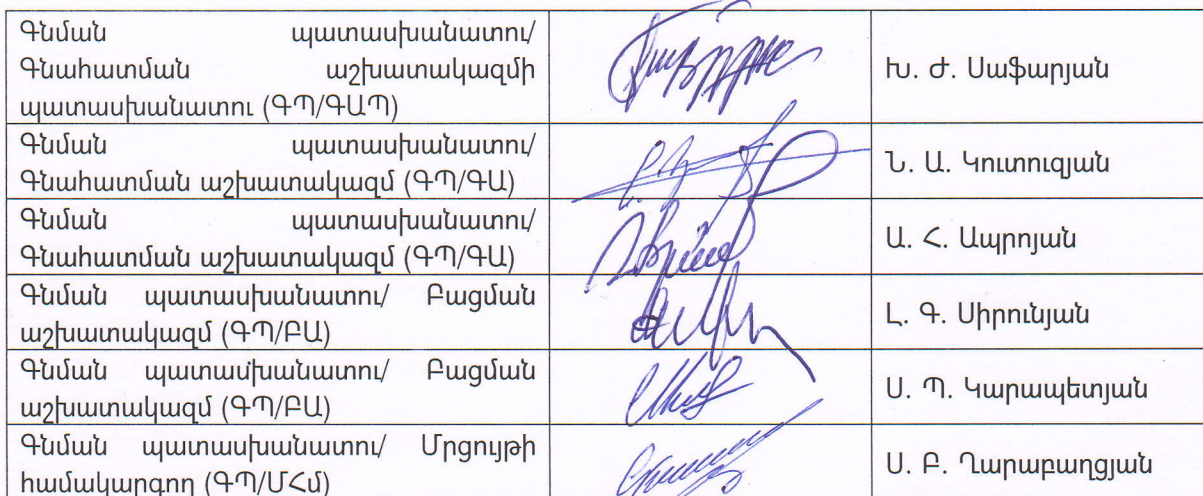 Գնման պատասխանատու/
Գնահատման աշխատակազմի
պատասխանատու (ԳՊ/ԳԱՊ)
Խ. Ժ. Սաֆարյան
Գնման պատասխանատու/
Գնահատման աշխատակազմ (ԳՊ/ԳԱ)
Ն. Ա. Կուտուզյան
Գնման պատասխանատու/
Գնահատման աշխատակազմ (ԳՊ/ԳԱ)
Ա. Հ. Ապրոյան
Գնման պատասխանատու/ Բացման
աշխատակազմ (ԳՊ/ԲԱ)
Լ. Գ. Սիրունյան
Գնման պատասխանատու/ Բացման
աշխատակազմ (ԳՊ/ԲԱ)
Ս. Պ. Կարապետյան
Գնման պատասխանատու/ Մրցույթի
համակարգող (ԳՊ/ՄՀմ)
Ս. Բ. Ղարաբաղցյան